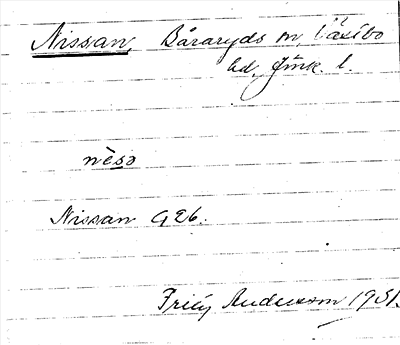 Nissan, Båraryds sn, Västbo
hd, Jönk. l.
nèsa
Nissan G26.
Andersson 1931.